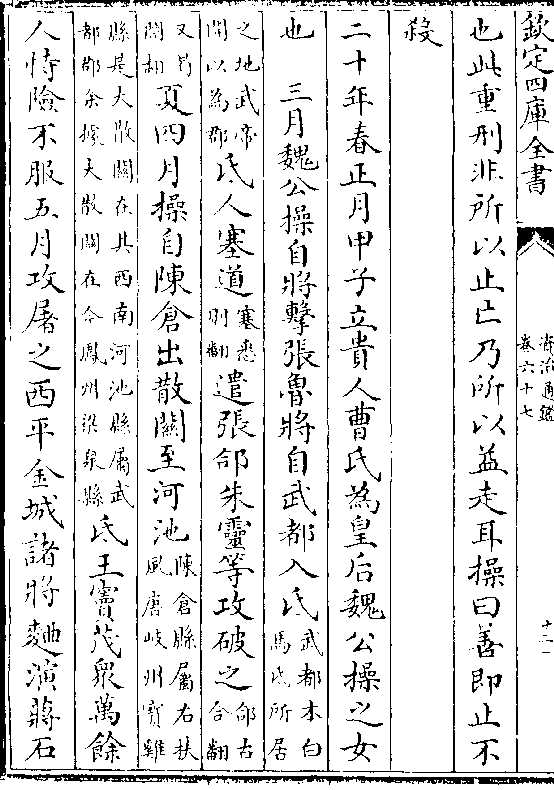 欽定四庫全書
資治通鑑
卷六十七
十二
也此重刑非所以止亡乃所以益走耳操曰善即止不
殺
二十年春正月甲子立貴人曹氏為皇后魏公操之女
也　三月魏公操自將擊張魯將自武都入氐武都本白
馬氐所居
之地武帝
開以為郡氐人塞道塞悉
則翻遣張郃朱靈等攻破之郃古
合翻
又曷
閤翻夏四月操自陳倉出散關至河池陳倉縣屬右扶
風唐岐州寶雞
縣是大散關在其西南河池縣屬武
都郡余據大散關在今鳳州梁泉縣氐王竇茂衆萬餘
人恃險不服五月攻屠之西平金城諸將麴演蔣石